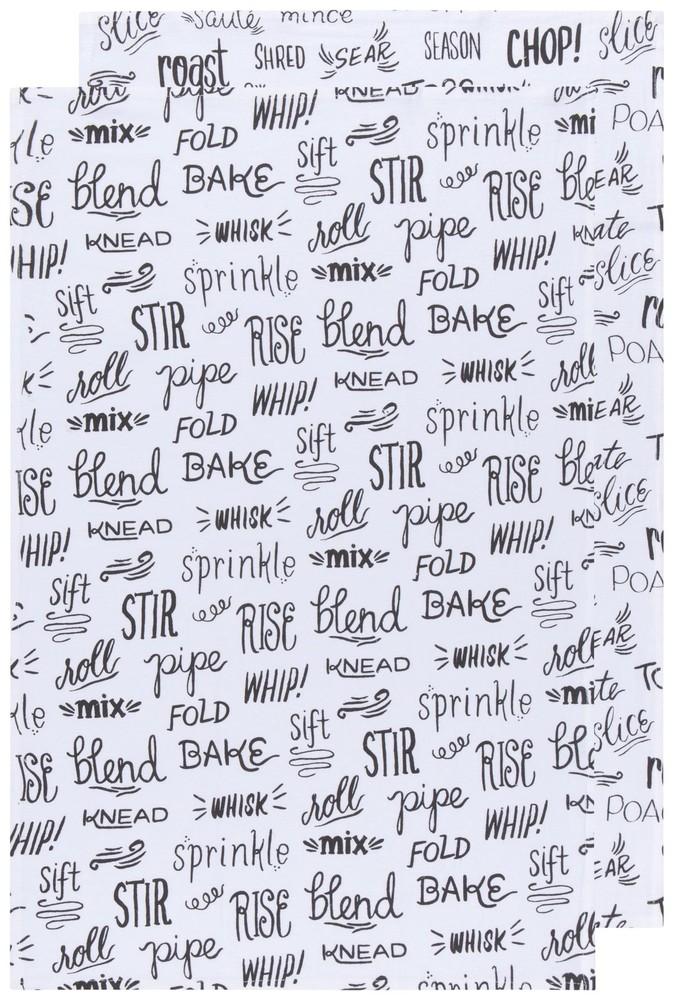 slice sauté mince
roast SHRED SEAR SEASON CHOP! slice
roll pipe WHIP! KNEAD
mix FOLD sift sprinkle mi POA
blend BAKE STIR RISE ble EAR
KNEAD WHISK roll pipe WHIP! KN ate
HIP! sprinkle mix FOLD sift slice
sift STIR RISE blend BAKE
roll pipe WHIP! KNEAD WHISK roll POA
mix FOLD sift sprinkle mi EAR
ISE blend BAKE STIR RISE ble te
KNEAD WHISK roll pipe WHIP! KN slice
HIP! sprinkle mix FOLD sift POA
sift STIR RISE blend BAKE
roll pipe WHIP! KNEAD WHISK roll EAR
kle mix FOLD sift sprinkle mi te TO
ISE blend BAKE STIR RISE ble slice
KNEAD WHISK roll pipe WHIP! KN POA
WHIP! sprinkle mix FOLD sift EAR
sift STIR RISE blend BAKE
roll pipe WHIP! KNEAD WHISK roll te
mix sift sprinkle mi